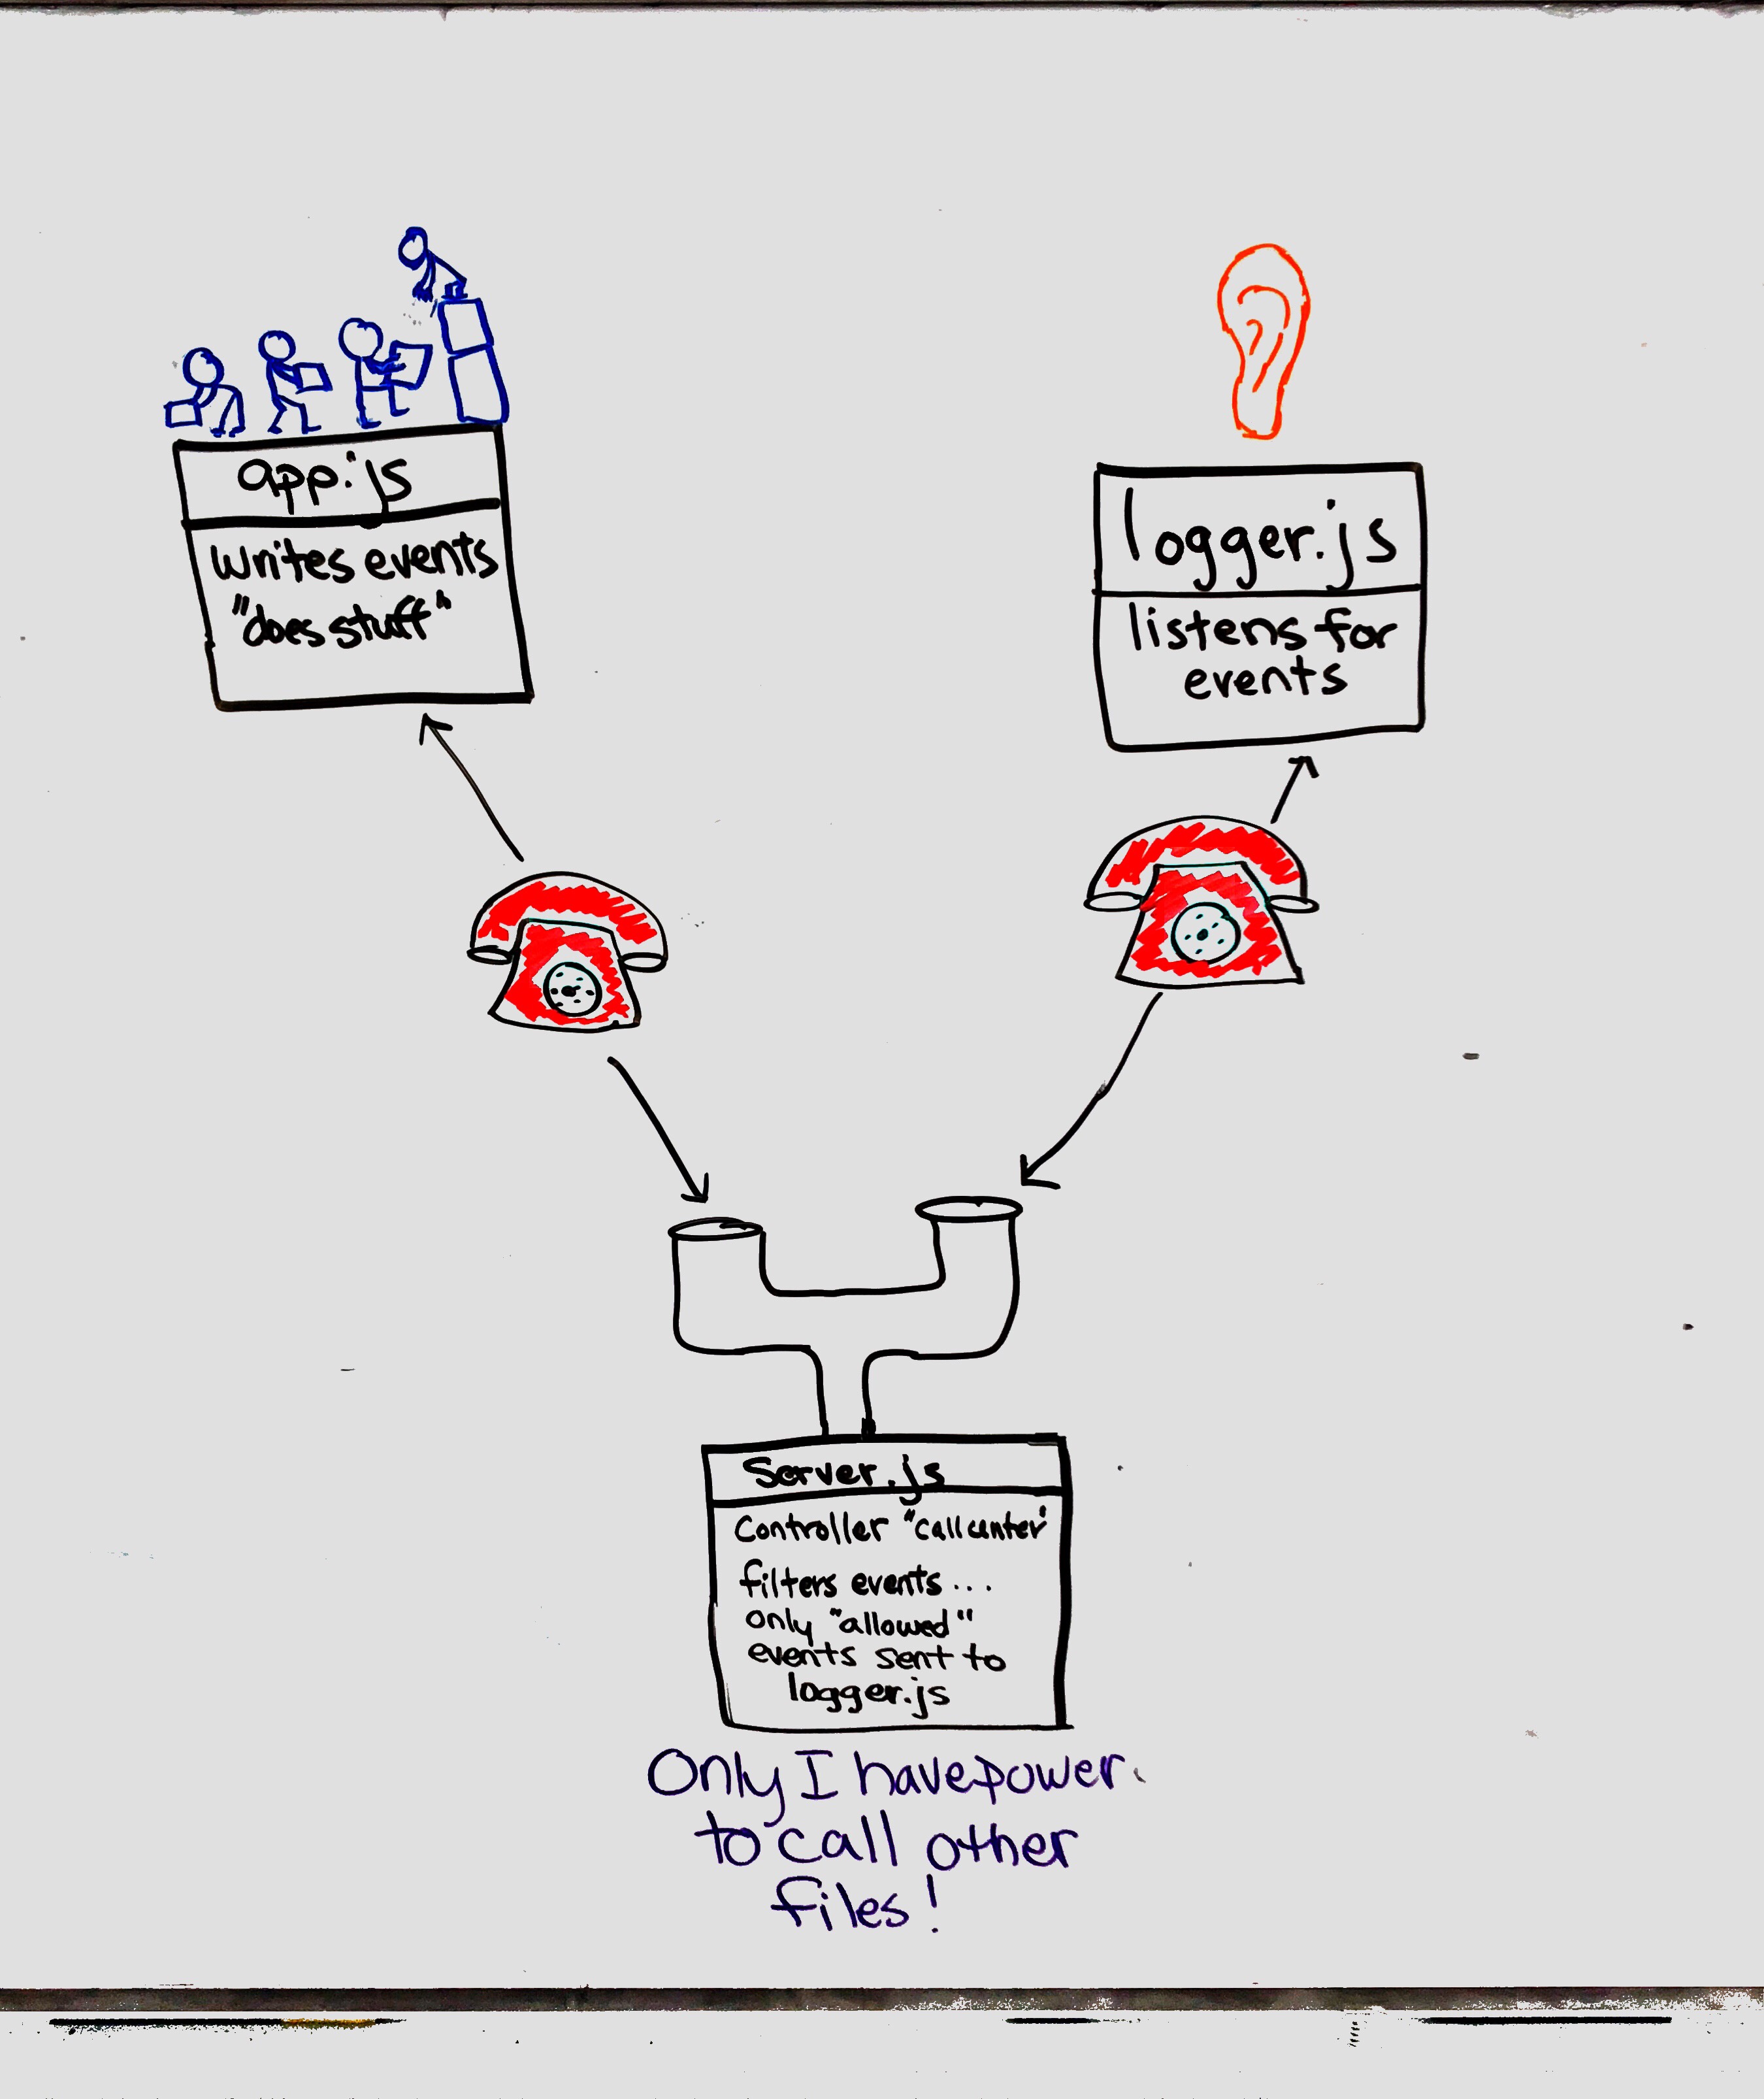 app.js
Writes events
"does stuff"
logger.js
listens for
events
Server.js
Controller "call center"
filters events...
only "allowed"
events sent to
logger.js
Only I have power
to call other
files!